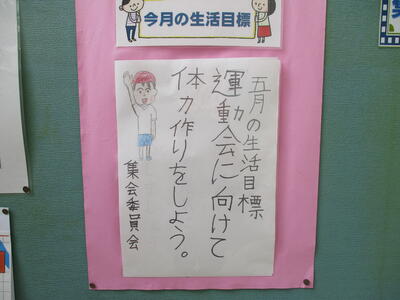 今月の生活目標
五月の生活目標
運動会に向けて
体力作りをしよう。
集会委員会